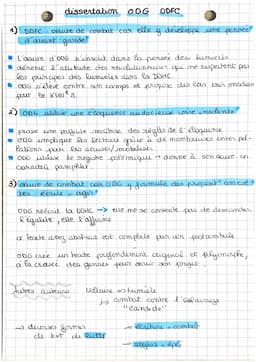 dissertation ODG DDFC
1) DDFC : œuvre de combat car elle y développe une pensée
d'avant garde
L'œuvre d'ODG s'inscrit dans la pensée des lumières
dénonce l'attitude des révolutionnaires qui ne respectent pas
les principes des lumières dans la DDHC
ODG s'élève contre son camps et propose des
par le XVIIIe s.
2) ODG utilise une éloquence audacieuse voire insolente
une parfaite maîtrise des règles de l'éloquence
ODG implique les lecteurs grâce à de nombreuses inter pel-
lations
ODG utilise le registre polémique → donne à son œuvre un
caractère pamphlet.
3) œuvre de combat car ODG y formule des
ODG réécrit la DDHC → elle ne se contente pas de demander
l'égalité, elle l'affirme
ce texte assez abstrait est complété par un postambule
ODG crée un texte profondément original et polymorphe,
à la croisée des genres pour servir son projet.
Autres auteurs Voltaire → lumière
↳ combat contre l'esclavage
"Candide"
→ diverses formes → écriture = combat
de lutte